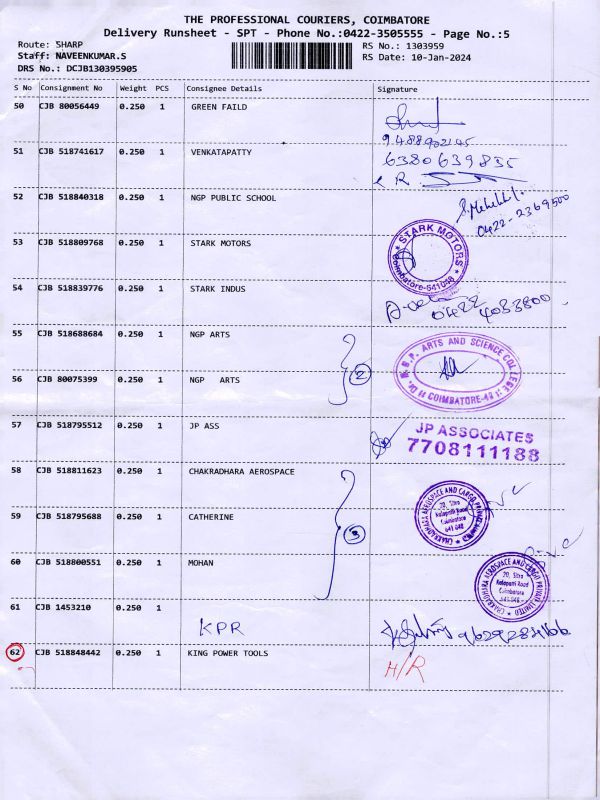 THE PROFESSIONAL COURIERS, COIMBATORE
Delivery Runsheet - SPT - Phone No.:0422-3505555 - Page No.:5
Route: SHARP
Staff: NAVEENKUMAR.S
DRS No.: DCJB130395905
RS No.: 1303959
RS Date: 10-Jan-2024
S No Consignment No Weight PCS Consignee Details Signature
50 CJB 80056449 0.250 1 GREEN FAILD
9488902145
51 CJB 518741617 0.250 1 VENKATAPATTY 6380639835
52 CJB 518840318 0.250 1 NGP PUBLIC SCHOOL
0422-2369500
53 CJB 518809768 0.250 1 STARK MOTORS
STARK MOTORS
Coimbatore-641048
54 CJB 518839776 0.250 1 STARK INDUS
0422 4033800
55 CJB 518688684 0.250 1 NGP ARTS
2
Dr. N.G.P. ARTS AND SCIENCE COLLEGE
COIMBATORE-48
56 CJB 80075399 0.250 1 NGP ARTS
57 CJB 518795512 0.250 1 JP ASS
JP ASSOCIATES
7708111188
58 CJB 518811623 0.250 1 CHAKRADHARA AEROSPACE
CHAKRADHARA AEROSPACE AND CARGO PRIVATE LIMITED
70, Sitra
Kalapatti Road
Coimbatore
641 048
59 CJB 518795688 0.250 1 CATHERINE
3
60 CJB 518800551 0.250 1 MOHAN
CHAKRADHARA AEROSPACE AND CARGO PRIVATE LIMITED
70, Sitra
Kalapatti Road
Coimbatore
641 048
61 CJB 1453210 0.250 1
KPR
62 CJB 518848442 0.250 1 KING POWER TOOLS
H/R